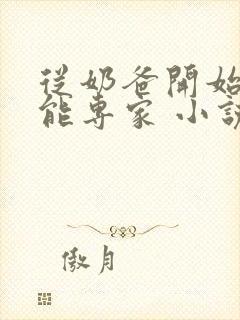 從奶爸開始
能專家 小說
傲月